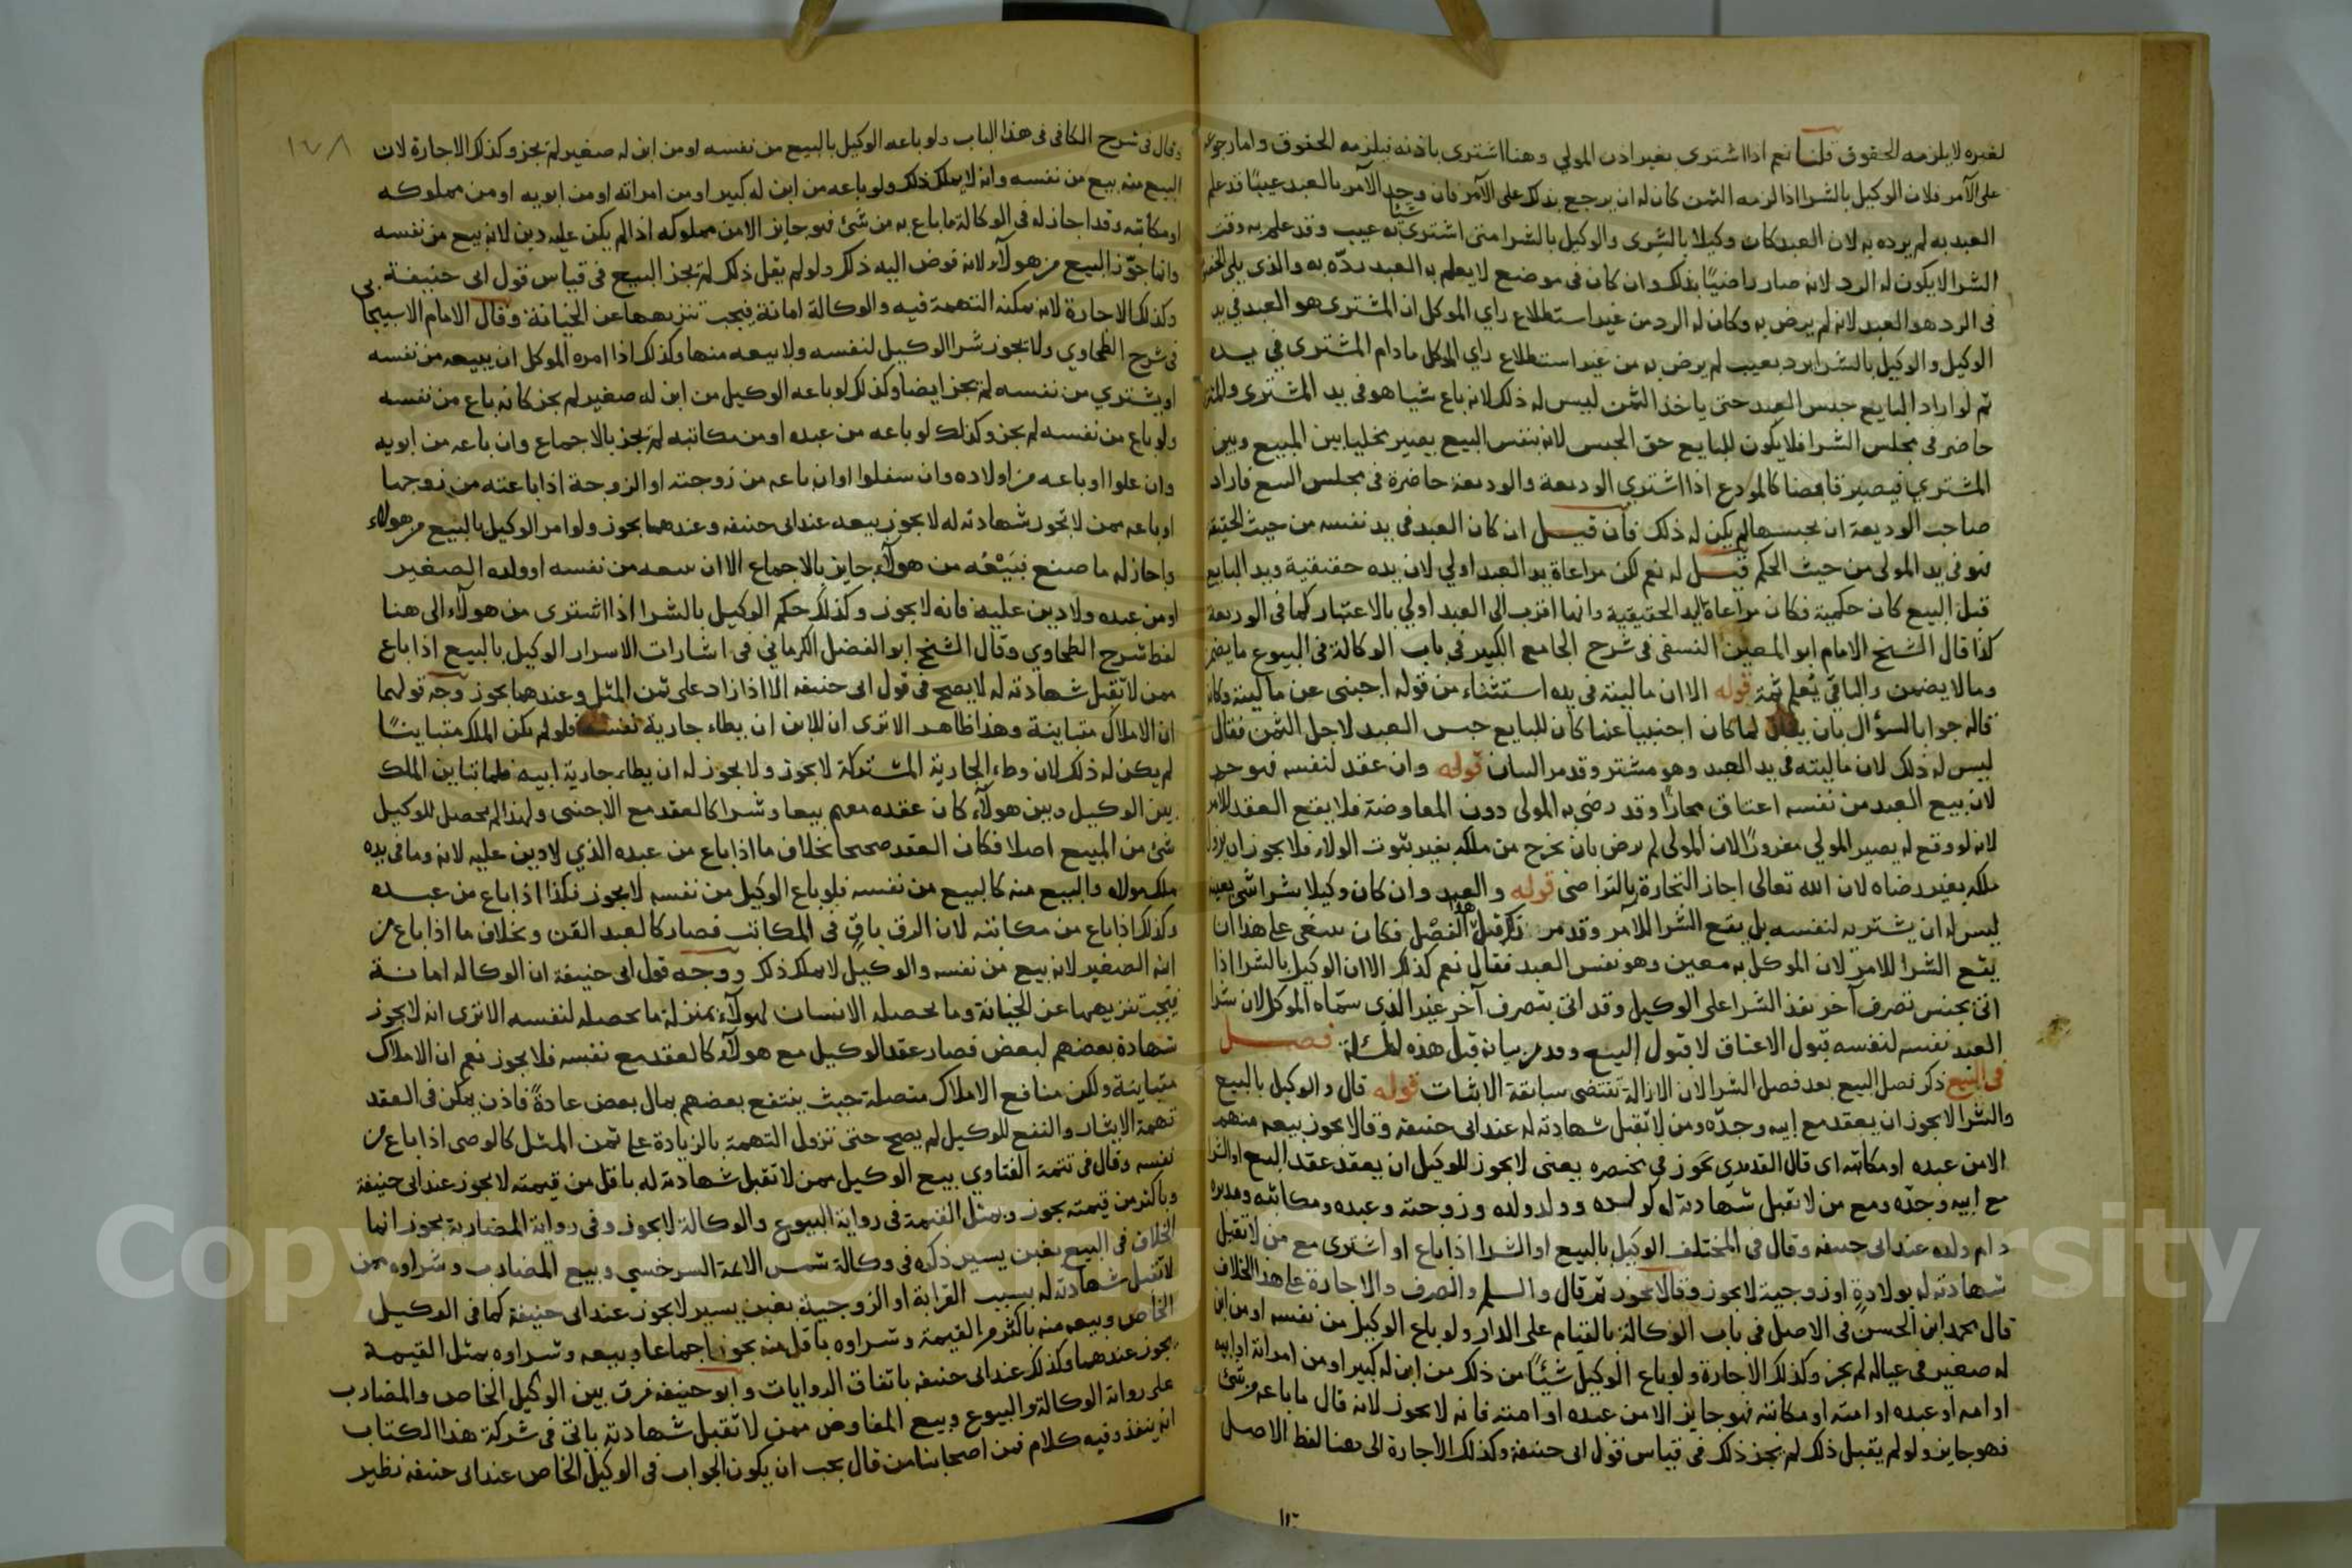 لغيره لا يلزمه الحقوق قلنا نعم اذا اشترى بغير اذن المولي وهنا اشترى باذنه فيلزمه الحقوق واما رجوعه
على الآمر فلان الوكيل بالشرا اذا لزمه الثمن كان له ان يرجع بذلك على الآمر فان وجد الآمر بالعبد عيبًا قد علم
العبد به لم يرده به لان العبد كان وكيلا بالشرى والوكيل بالشرا متى اشترى شيئًا به عيب وقد علم به وقت
الشرا لا يكون له الرد لانه صار راضيًا بذلك وان كان في موضع لا يعلم به العبد ردّه به والذي يلي الخصومة
في الرد هو العبد لانه لم يرض به وكان له الرد من غير استطلاع راي الموكل ان المشترى هو العبد في يد
الوكيل والوكيل بالشرا يرد بعيب لم يرض به من غير استطلاع راي الموكل ما دام المشترى في يده
ثم لو اراد البايع حبس العبد حتى ياخذ الثمن ليس له ذلك لانه باع شيا هو في يد المشترى والمشترى
حاضر في مجلس الشرا فلا يكون للبايع حق الحبس لانه بنفس البيع يصير مخليا بين المبيع وبين
المشتري فيصير قابضا كالمودع اذا اشترى الوديعة والوديعة حاضرة في مجلس البيع فاراد
صاحب الوديعة ان يحبسها لم يكن له ذلك فان قيل ان كان العبد في يد نفسه من حيث الحقيقة
فهو في يد المولى من حيث الحكم قيل له نعم لكن مراعاة يد العبد اولي لان يده حقيقية ويد البايع
قبل البيع كان حكمية فكان مراعاة اليد الحقيقية وانها اقرب الى العبد اولي بالاعتبار كما في الوديعة
كذا قال الشيخ الامام ابو المعين النسفي في شرح الجامع الكبير في باب الوكالة في البيوع ما يضمن
وما لا يضمن والباقي يُعلم ثمة قوله الا ان ماليته في يده استثناء من قوله اجنبى عن ماليته وكانه
قاله جوابا لسؤال بان يقال لما كان اجنبيا عنها كان للبايع حبس العبد لاجل الثمن فقال
ليس له ذلك لان ماليته في يد العبد وهو مشتر وقد مر البيان قوله وان عقد لنفسه فهو حر
لان بيع العبد من نفسه اعتاق مجازًا وقد رضي به المولى دون المعاوضة فلا يقع العقد للآمر
لانه لو وقع له يصير المولي مغرورًا لان المولى لم يرض بان يخرج من ملكه بغير ثبوت الولاء فلا يجوز ان يزول
ملكه بغير رضاه لان الله تعالى اجاز التجارة بالتراضى قوله والعبد وان كان وكيلا بشرا شي بعينه
ليس له ان يشتريه لنفسه بل يقع الشرا للآمر وقد مر ذكره قبل هذا الفصل فكان ينبغى على هذا ان
يقع الشرا للآمر لان الموكل به معين وهو نفس العبد فقال نعم كذلك الا ان الوكيل بالشرا اذا
اتى بجنس تصرف آخر نفذ الشرا على الوكيل وقد اتى بتصرف آخر غير الذي سمّاه الموكل لان شرا
العبد نفسه لنفسه قبول الاعتاق لا قبول البيع وقد مر بيانه قبل هذه المسئلة فصل
في البيع ذكر فصل البيع بعد فصل الشرا لان الازالة تقتضى سابقة الاثبات قوله قال والوكيل بالبيع
والشرا لا يجوز ان يعقد مع ابيه وجدّه ومن لا تقبل شهادته له عند ابى حنيفة وقالا يجوز بيعه منهم
الا من عبده او مكاتبه اى قال القدوري في مختصره يعنى لا يجوز للوكيل ان يعقد عقد البيع او الشرا
مع ابيه وجدّه ومع من لا تقبل شهادته له كولده وولد ولده وزوجته وعبده ومكاتبه ومدبره
وام ولده عند ابى حنيفه وقال في المختلف الوكيل بالبيع او الشرا اذا باع او اشترى مع من لا تقبل
شهادته له بولادةٍ او زوجية لا يجوز وقالا يجوز ثم قال والسلم والصرف والاجارة على هذا الخلاف
قال محمد ابن الحسن في الاصل في باب الوكالة بالقيام على الدار ولو باع الوكيل من نفسه او من ابن
له صغير في عياله لم يجز وكذلك الاجارة ولو باع الوكيل شيئًا من ذلك من ابن له كبير او من امراته او ابيه
او امه او عبده او امته او مكاتبه فهو جايز الا من عبده او امته فانه لا يجوز لانه قال ما باعه من شئ
فهو جايز ولو لم يقبل ذلك لم يجز ذلك في قياس قول ابى حنيفة وكذلك الاجارة الى هنا لفظ الاصل
وقال في شرح الكافى في هذا الباب ولو باعه الوكيل بالبيع من نفسه او من ابن له صغير لم يجز وكذلك الاجارة لان
البيع منه بيع من نفسه وانه لا يملك ذلك ولو باعه من ابن له كبير او من امراته او من ابويه او من مملوكه
او مكاتبه وقد اجاز له في الوكالة ما باع به من شئ فهو جايز الا من مملوكه اذا لم يكن عليه دين لانه بيع من نفسه
وانما جوّز البيع من هولآء لانه فوض اليه ذلك ولو لم يقل ذلك لم يجز البيع في قياس قول ابى حنيفة
وكذلك الاجارة لانه يمكنه التهمة فيه والوكالة امانة فيجب تنزيهها عن الخيانة وقال الامام الاسبيجابى
في شرح الطحاوي ولا يجوز شرا الوكيل لنفسه ولا بيعه منها وكذلك اذا امره الموكل ان يبيعه من نفسه
او يشتري من نفسه لم يجز ايضا وكذلك لو باعه الوكيل من ابن له صغير لم يجز كانه باع من نفسه
ولو باع من نفسه لم يجز وكذلك لو باعه من عبده او من مكاتبه لم يجز بالاجماع وان باعه من ابويه
وان علوا او باعه من اولاده وان سفلوا او ان باعه من زوجته او الزوجة اذا باعته من زوجها
او باعه ممن لا تجوز شهادته له لا يجوز بيعه عند ابى حنيفه وعندهما يجوز ولو امر الوكيل بالبيع من هولاء
واجاز له ما صنع فبَيْعُه من هولآء جايز بالاجماع الا ان يبيعه من نفسه او ولده الصغير
او من عبده ولا دين عليه فانه لا يجوز وكذلك حكم الوكيل بالشرا اذا اشترى من هولآء الى هنا
لفظ شرح الطحاوي وقال الشيخ ابو الفضل الكرماني في اشارات الاسرار الوكيل بالبيع اذا باع
ممن لا تقبل شهادته له لا يصح في قول ابى حنيفه الا اذا زاد على ثمن المثل وعندهما يجوز وجه قولهما
ان الاملاك متباينة وهذا ظاهر الا ترى ان للابن ان يطاء جارية نفسه فلو لم يكن الملك متباينًا
لم يكن له ذلك لان وطء الجارية المشتركة لا يجوز ولا يجوز له ان يطاء جارية ابيه فلما تباين الملك
بين الوكيل وبين هولآء كان عقده معهم بيعا وشرا كالعقد مع الاجنبى ولهذا لم يحصل للوكيل
شئ من المبيع اصلا فكان العقد صحيحا بخلاف ما اذا باع من عبده الذي لا دين عليه لانه وما في يده
ملك مولاه والبيع منه كالبيع من نفسه فلو باع الوكيل من نفسه لا يجوز فكذا اذا باع من عبده
وكذلك اذا باع من مكاتبه لان الرق باقٍ في المكاتب فصار كالعبد القن وبخلاف ما اذا باع من
ابنه الصغير لانه بيع من نفسه والوكيل لا يملك ذلك ووجه قول ابى حنيفة ان الوكاله امانة
فيجب تنزيهها عن الخيانة وما يحصله الانسان لهولآء بمنزلة ما يحصله لنفسه الا ترى انه لا يجوز
شهادة بعضهم لبعض فصار عقد الوكيل مع هولآء كالعقد مع نفسه فلا يجوز نعم ان الاملاك
متباينة ولكن منافع الاملاك متصلة حيث ينتفع بعضهم بمال بعض عادةً فاذن يمكن في العقد
تهمة الايثار والنفع للوكيل لم يصح حتى تزول التهمة بالزيادة على ثمن المثل كالوصى اذا باع من
نفسه وقال في تتمة الفتاوي بيع الوكيل ممن لا تقبل شهادته له باقل من قيمته لا يجوز عند ابى حنيفة
وباكثر من قيمته يجوز وبمثل القيمة في رواية البيوع والوكالة لا يجوز وفي رواية المضاربة يجوز انما
الخلاف في البيع بغبن يسير ذكره في وكالة شمس الائمة السرخسي وبيع المضارب وشراوه ممن
لا تقبل شهادته له بسبب القرابة او الزوجية بغبن يسير لا يجوز عند ابى حنيفة كما في الوكيل
الخاص وبيعه منه باكثر من القيمة وشراوه باقل منه يجوز اجماعا وبيعه وشراوه بمثل القيمة
يجوز عندهما وكذلك عند ابى حنيفه باتفاق الروايات وابو حنيفه فرق بين الوكيل الخاص والمضارب
على رواية الوكالة والبيوع وبيع المفاوض ممن لا تقبل شهادته ياتى في شركة هذا الكتاب
انه ينفذ وفيه كلام فمن اصحابنا من قال يجب ان يكون الجواب في الوكيل الخاص عند ابى حنيفه نظير